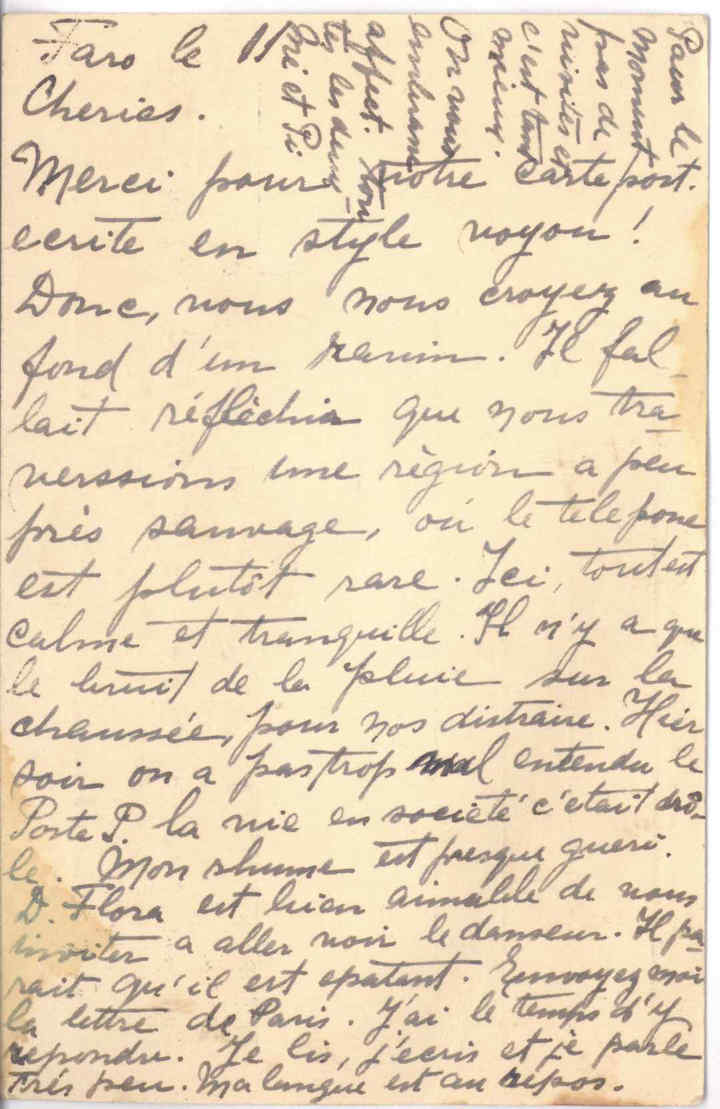 Faro le 11
Cheries.
Merci pour votre carte post.
ecrite en style voyou!
Donc, vous nous croyez au
fond d'un ravin. Il fal-
lait réfléchir que nous tra-
verssions une région a peu
près sauvage, ou le telefone
est plutôt rare. Ici, tout est
calme et tranquille. Il n'y a que
le bruit de la pluie sur la
chaussée, pour nos distraire. Hier
soir on a pas trop mal entendu le
Poste P. la vie en societé c'etait drô-
le. Mon rhume est presque gueri.
D. Flora est bien aimable de nous
inviter a aller voir le danseur. Il pa-
rait qu'il est epatant. Envoyez moi
la lettre de Paris. J'ai le temps d'y
repondre. Je lis, j'ecris et je parle
très peu. Ma langue est au repos.
Pour le
moment
pas de
visites et
c'est tant
mieux.
On vous
embrasse
affect. tou-
tes les deux
Mi et Pi